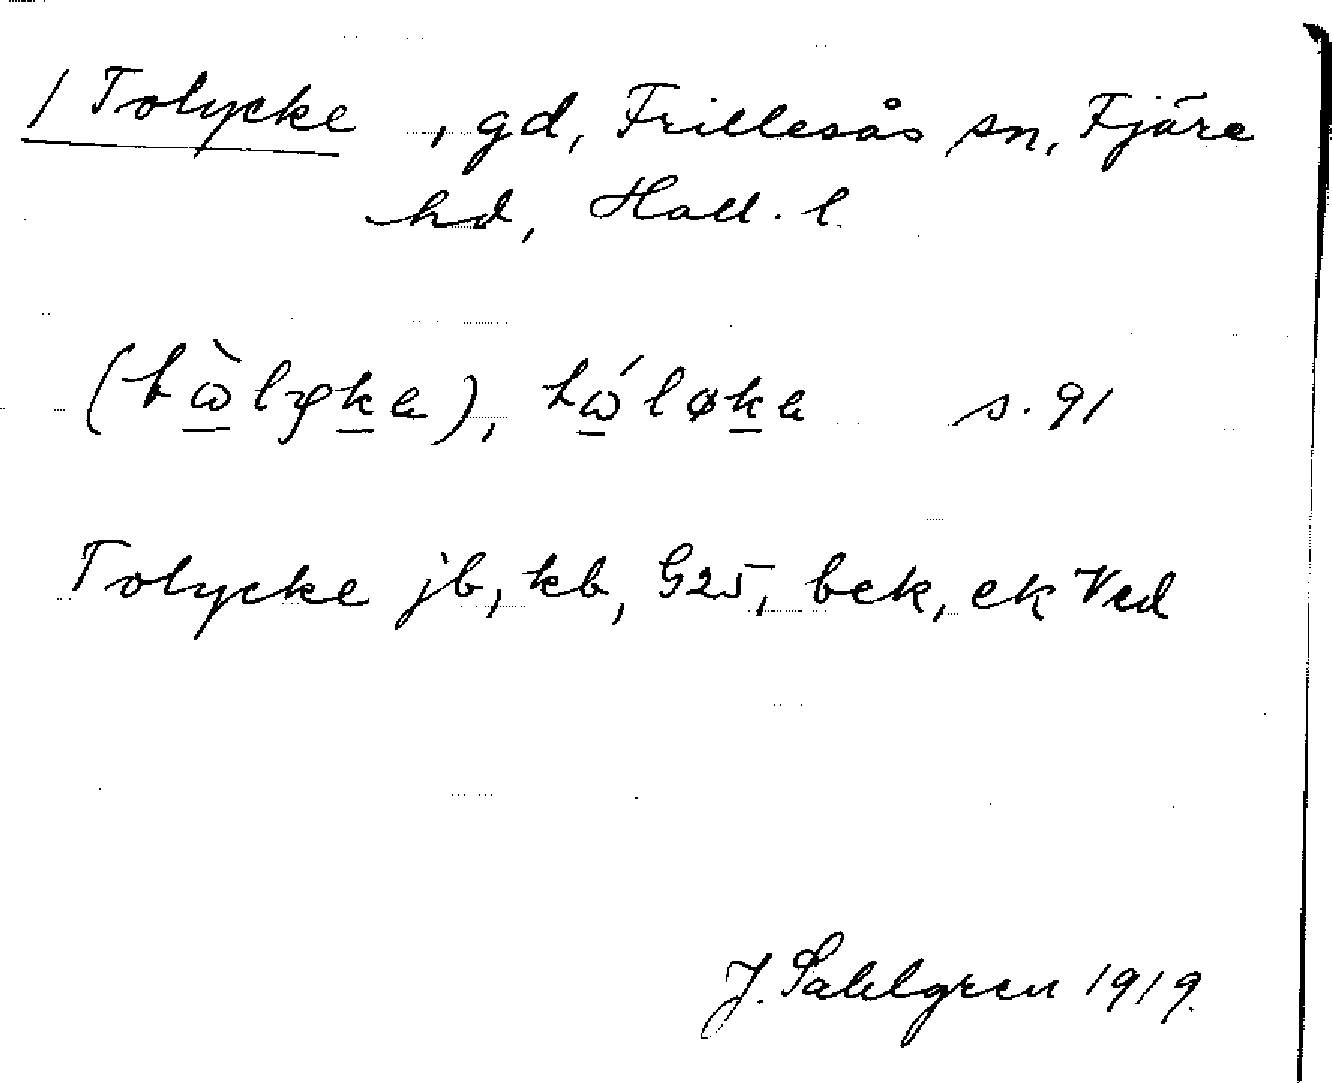 1 Tolycke , gd, Frillesås sn, Fjäre
hd, Hall. l.
(tὼlyka), tώløka s. 91
Tolycke jb, kb, G25, bek, ek Ved
J. Sahlgren 1919.